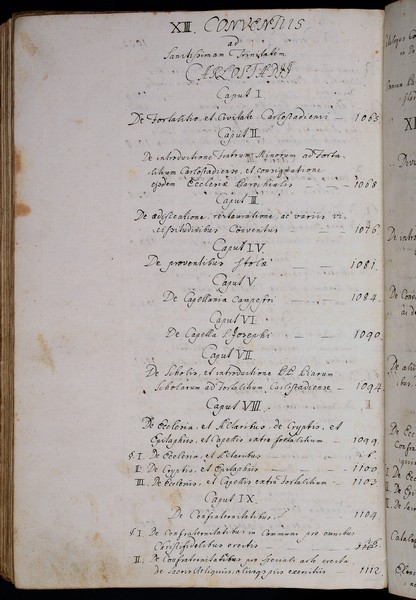 XIII. CONVENTUS
ad
Sanctissimam Trinitatem
CARLOSTADII
Caput I
De Fortalitio, et Civitate Carlostadiensi - 1063
Caput II
De introductione Fratrum Minorum ad Forta-
litium Carlostadiense, et consignatione
ejusdem Ecclesiæ Parochialis - 1068
Caput III
De ædificatione, restauratione, ac variis vi-
cissitudinibus Conventus - 1076
Caput IV
De proventibus Stolæ - 1081
Caput V
De Capellania campestri - 1084
Caput VI
De Capella S. Josephi - 1090
Caput VII
De Scholis, et introductione PP. Piarum
Scholarum ad Fortalitium Carlostadiense - 1094
Caput VIII
De Ecclesia, et Altaribus, de Cryptis, et
Epitaphiis, et Capellis extra fortalitium 1099
§. I. De Ecclesia, et Altaribus
II. De Cryptis, et Epitaphiis - 1100
III. De Ecclesiis, et Capellis extra Fortalitium - 1103
Caput IX
De Confraternitatibus 1104
§. I. De Confraternitatibus in Communi pro omnibus
Christifidelibus erectis
II. De Confraternitatibus pro speciali
de Sacris Reliquiis, aliisque piis exercitiis 1112